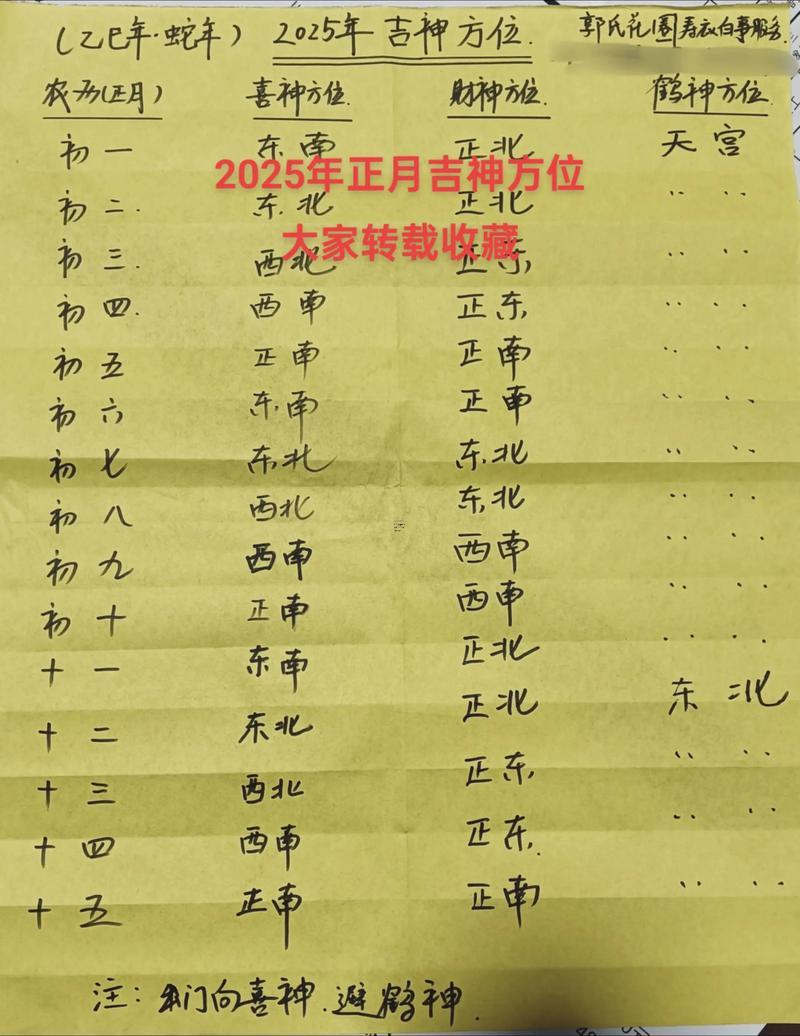 (乙巳年·蛇年) 2025年 吉神方位. 郭氏花圈寿衣白事服务
农历(正月) 喜神方位. 财神方位. 鹤神方位.
初一 东南 正北 天宫
2025年正月吉神方位
初二. 东.北 正北 ·· ··
大家转载收藏
初三. 西北 正东, ·· ··
初四. 西南 正东, ·· ··
初五 正南 正南 ·· ··
初六 东.南 正南 ·· ··
初七 东北 东北 ·· ··
初八 西北 东北 ·· ··
初九 西南 西南 ·· ··
初十 正南 西南 ·· ··
十一 东南 正北 ·· ··
十二 东北 正北 东北
十三 西北 正东, ·· ··
十四 西南 正东. ·· ··
十五 正南 正南 ·· ··
注: 出门向喜神.避鹤神.